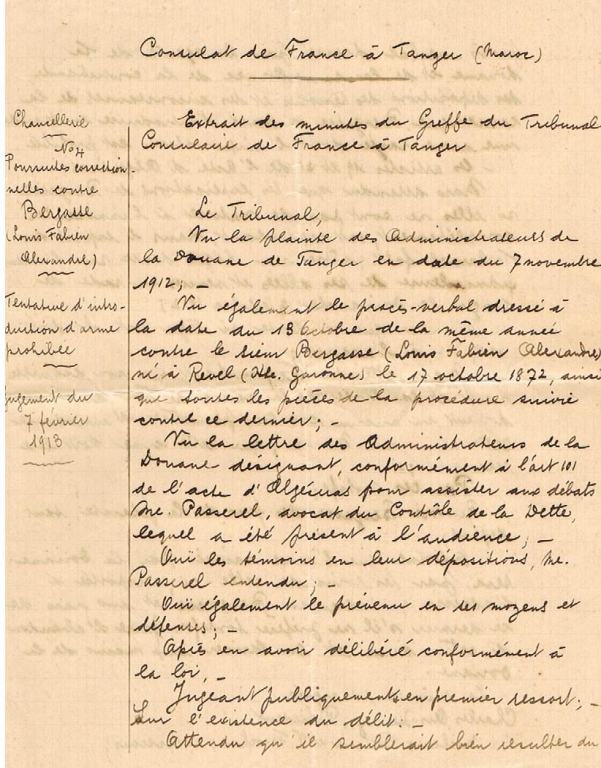 Consulat de France à Tanger (Maroc)
Chancellerie
No 4
Poursuites correction-
nelles contre
Bergasse
(Louis Fabien
Alexandre)
Tentative d'intro-
duction d'arme
prohibée
Jugement du
7 février
1913
Extrait des minutes du Greffe du Tribunal
Consulaire de France à Tanger
Le Tribunal,
Vu la plainte des Administrateurs de
la Douane de Tanger en date du 7 novembre
1912; -
Vu également le procès-verbal dressé à
la date du 13 Octobre de la même année
contre le sieur Bergasse (Louis Fabien Alexandre)
né à Revel (Hte. Garonne) le 17 octobre 1872, ainsi
que toutes les pièces de la procédure suivie
contre ce dernier; -
Vu la lettre des Administrateurs de la
Douane désignant, conformément à l'art 101
de l'acte d'Algésiras pour assister aux débats
Me. Passerel, avocat du Contrôle de la Dette,
lequel a été présent à l'audience; -
Oui les témoins en leur dépositions, Me.
Passerel entendu; -
Oui également le prévenu en ses moyens et
défenses; -
Après en avoir délibéré conformément à
la loi, -
Jugeant publiquement en premier ressort; -
Sur l'existence du délit: -
Attendu qu'il semblerait bien resulter du